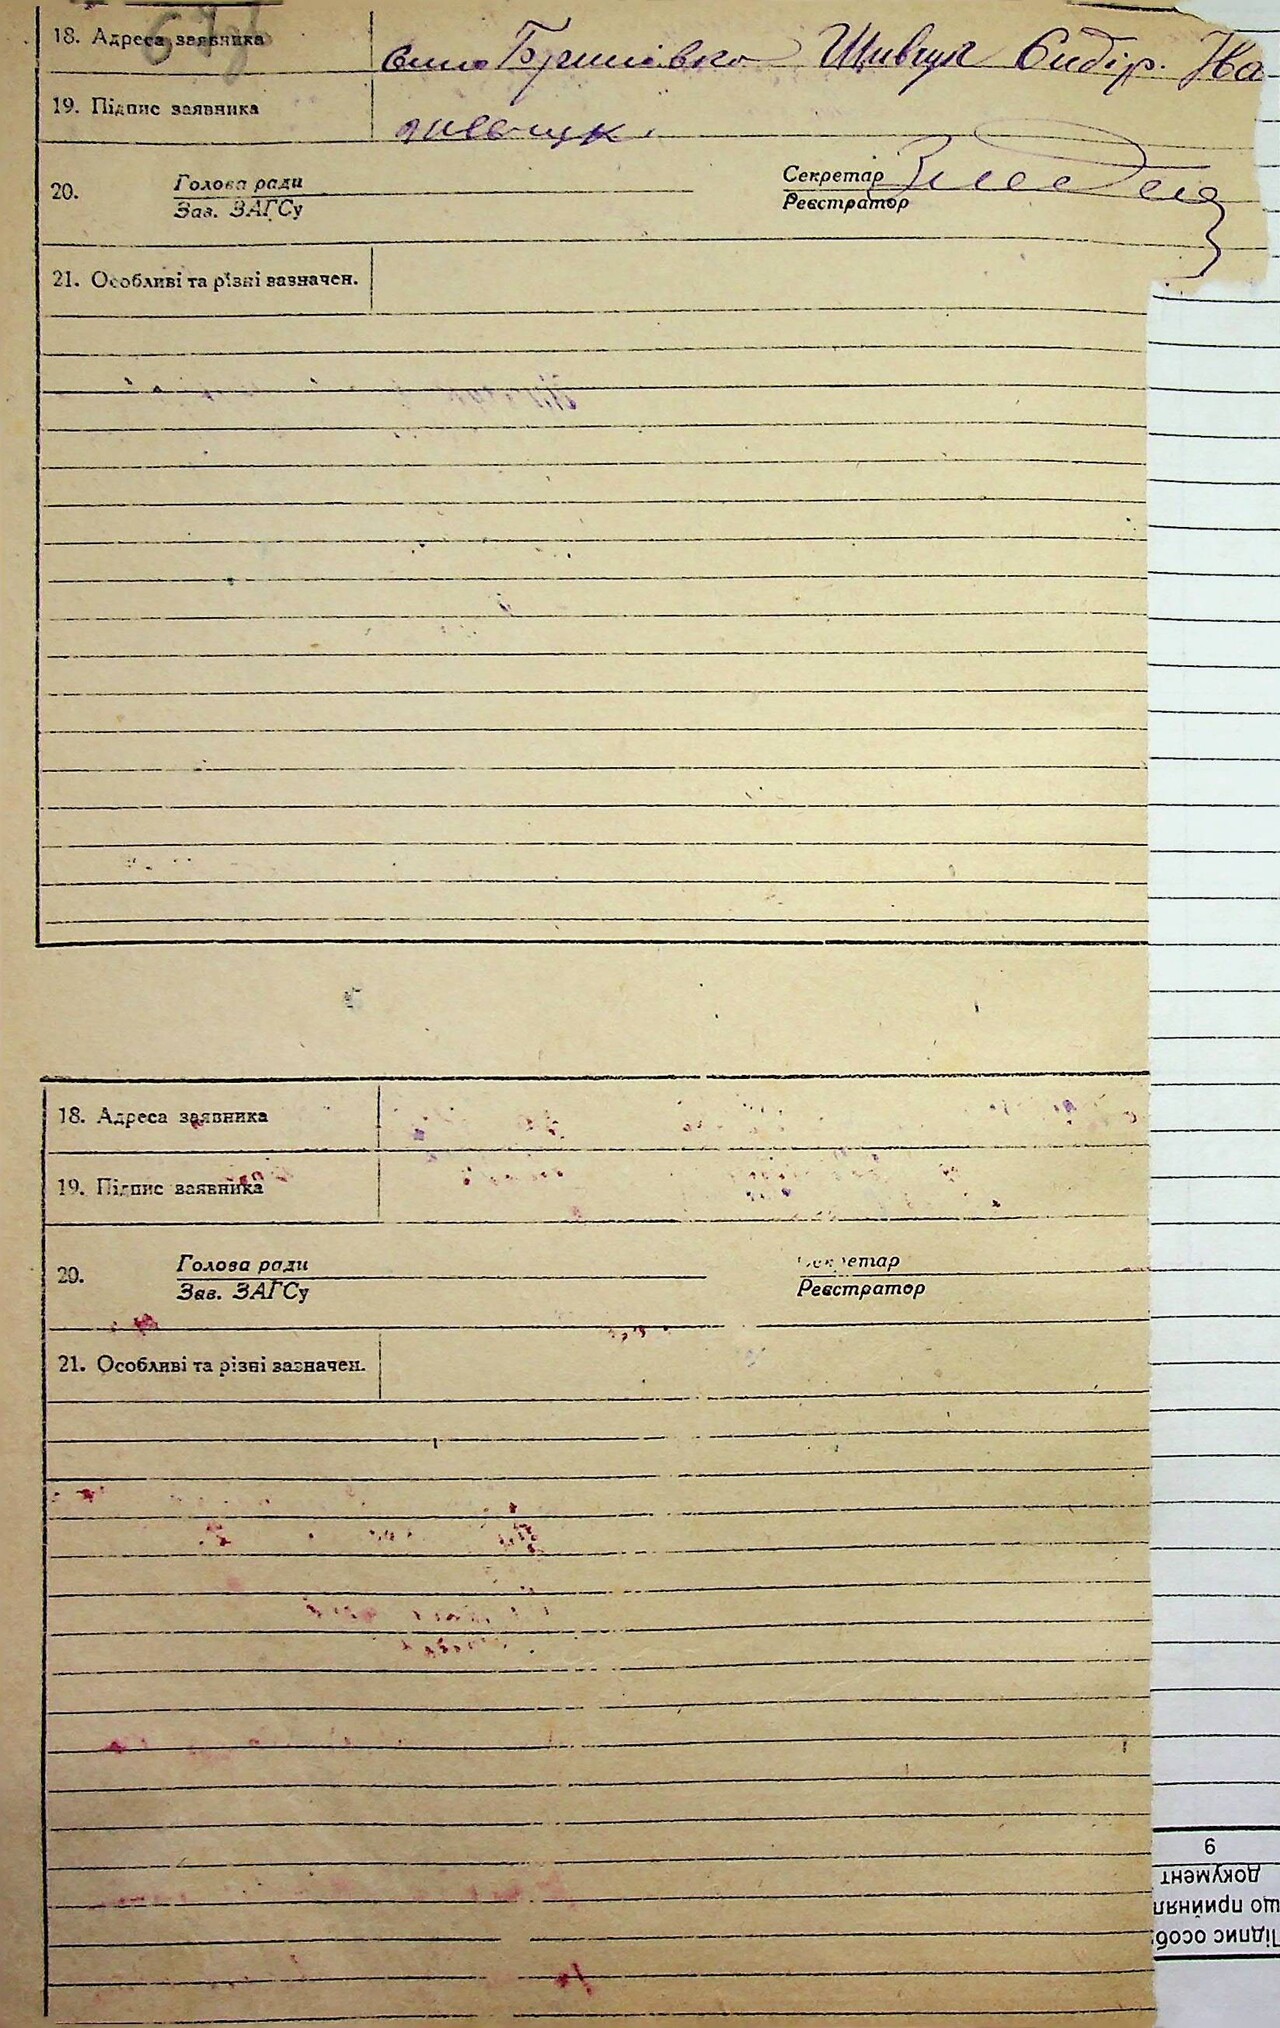 67зв
18. Адреса заявника село Шивчук Сидір. Іва
19. Підпис заявника
20. Голова ради Секретар
Зав. ЗАГСу Реєстратор
21. Особливі та різні зазначен.
18. Адреса заявника
19. Підпис заявника
20. Голова ради Секретар
Зав. ЗАГСу Реєстратор
21. Особливі та різні зазначен.
Підпис особ
що прийнял
документ
6